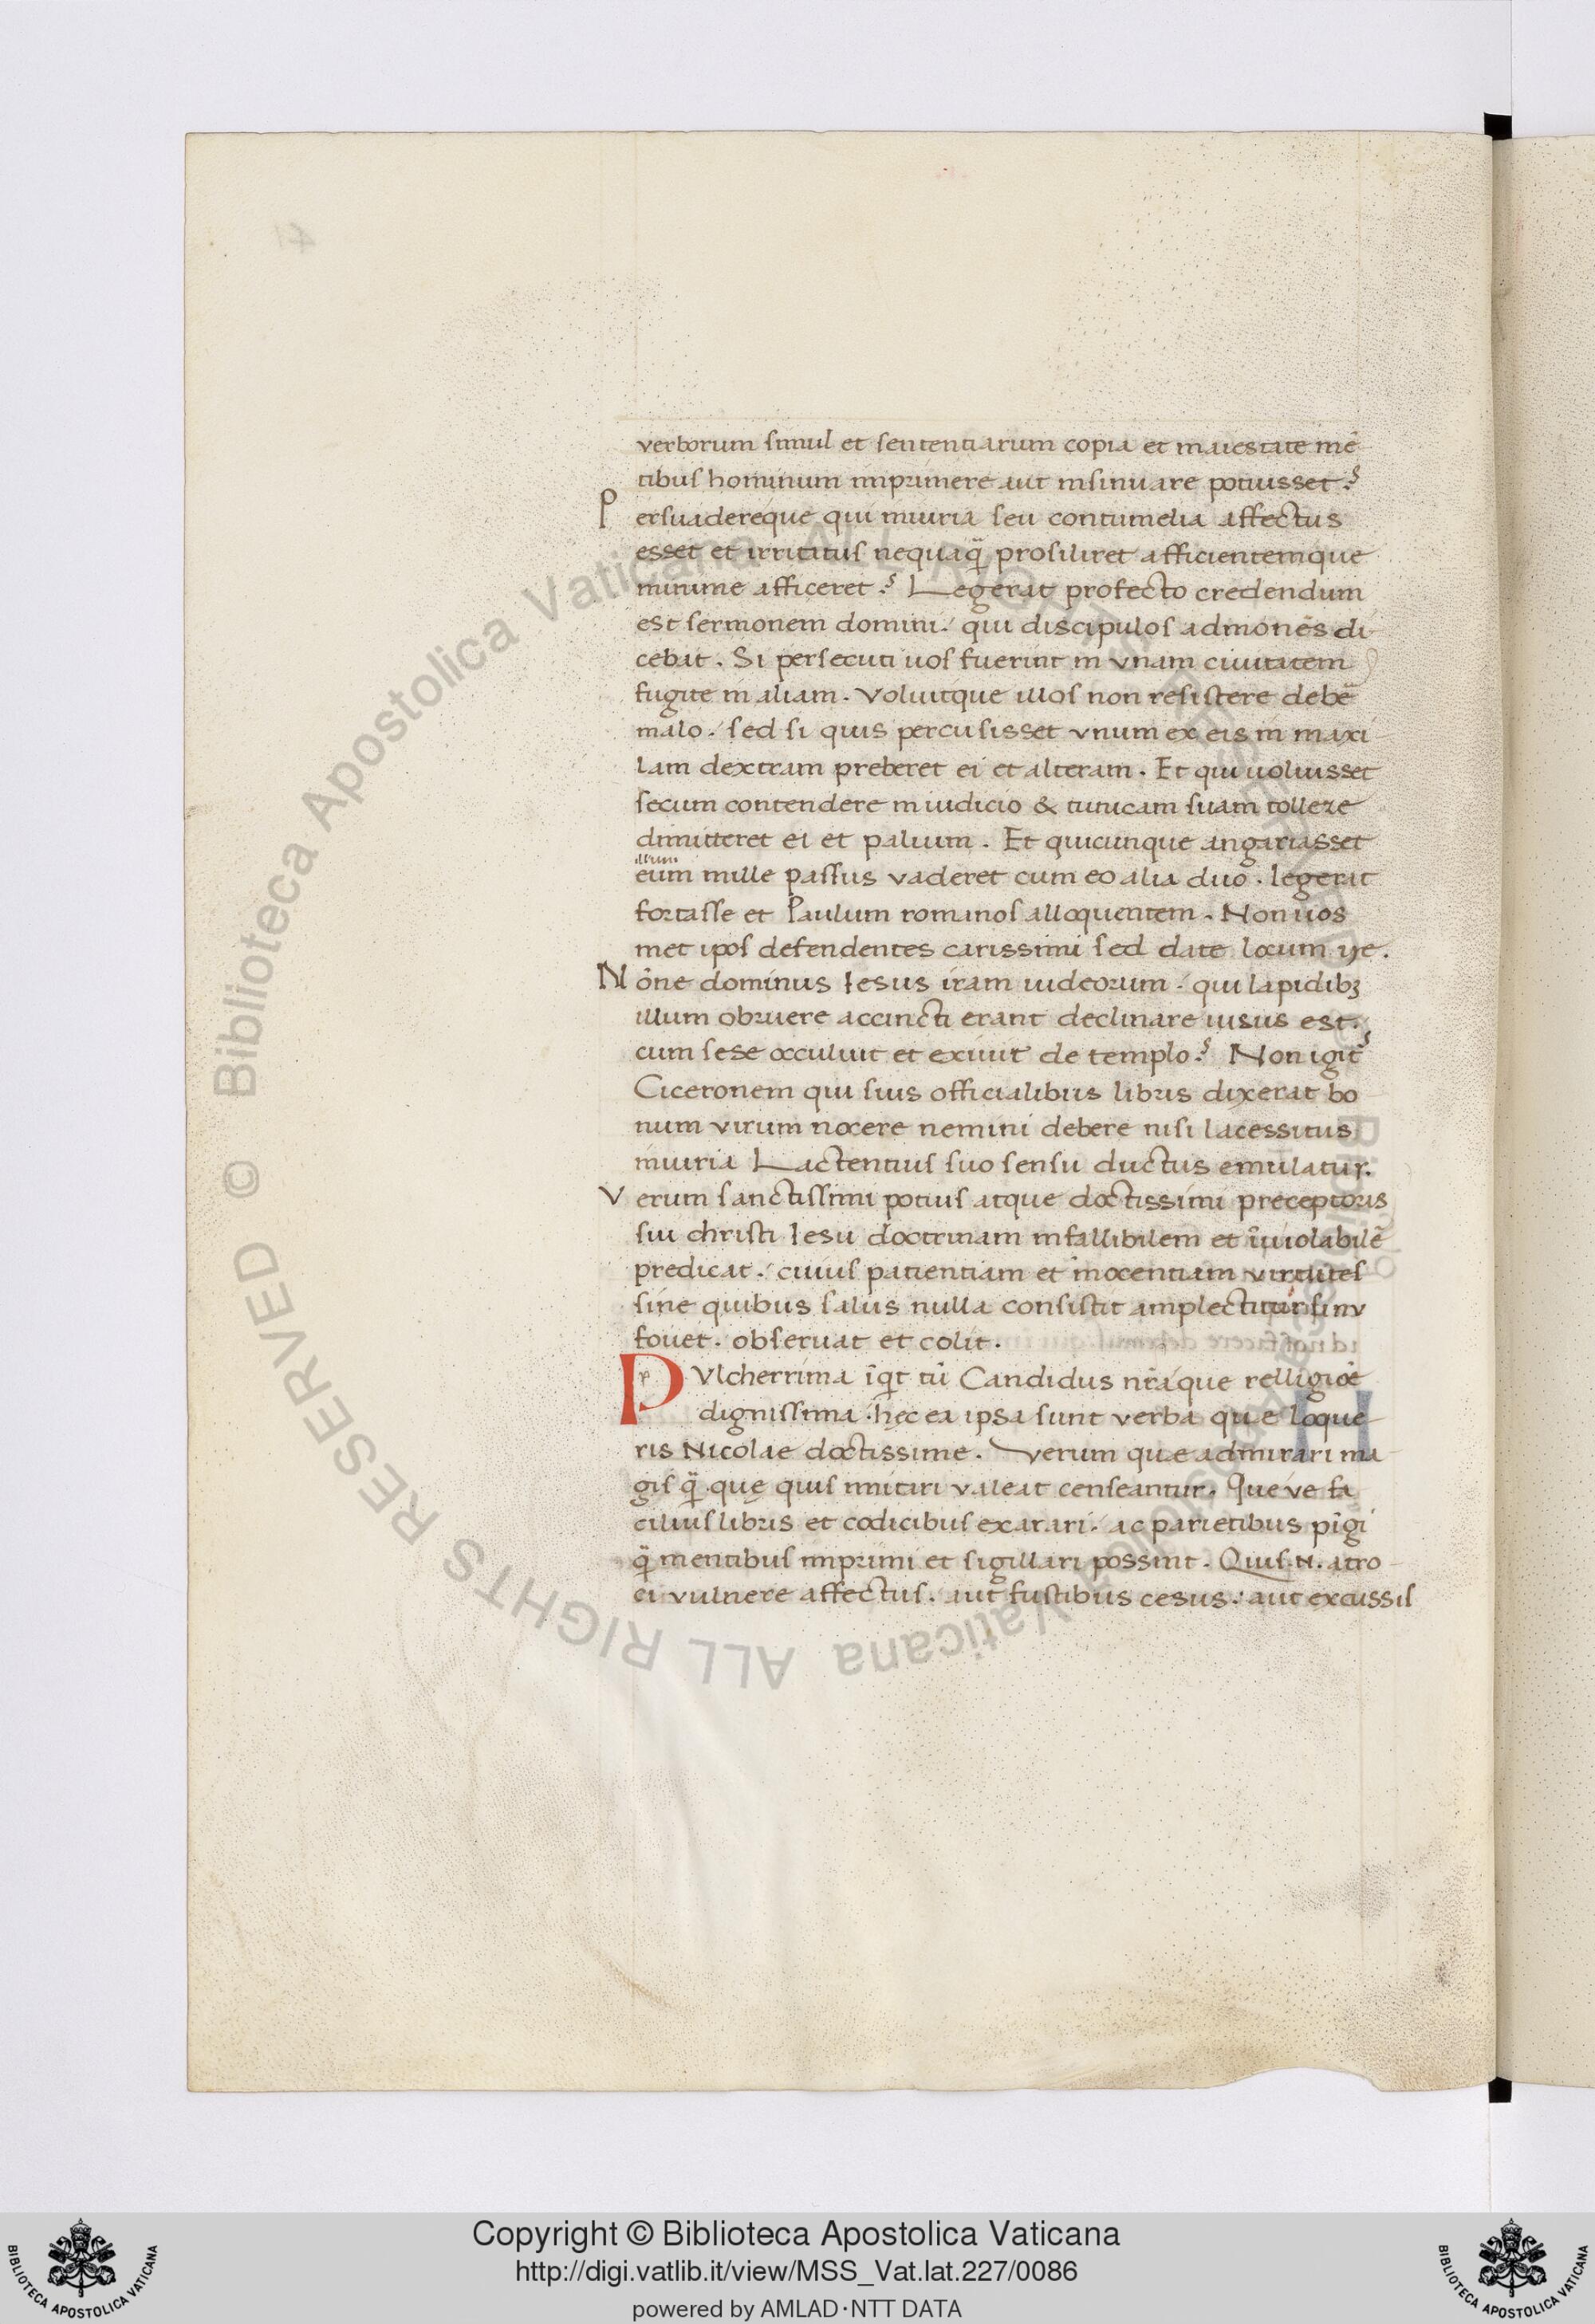 verborum simul et sententiarum copia et maiestate mē
tibus hominum imprimere aut insinuare potuisset?
Persuadereque qui iniuria seu contumelia affectus
esset et irritatus nequaq̄ prosiliret afficientemque
minime afficeret? Legerat profecto credendum
est sermonem domini. qui discipulos admonēs di
cebat. Si persecuti uos fuerint in vnam ciuitatem
fugite in aliam. Voluitque illos non resistere debē
malo. sed si quis percusisset vnum ex eis in maxi
lam dextram preberet ei et alteram. Et qui uoluisset
secum contendere in iudicio & tunicam suam tollere
dimitteret ei et palium. Et quicunque angariasset
illum
eum mille passus vaderet cum eo alia duo. legerat
fortasse et Paulum romanos alloquentem. Non uos
met ipos defendentes carissimi sed date locum ire.
Nōne dominus Iesus iram iudeorum. qui lapidibꝫ
illum obruere accincti erant declinare uisus est.
cum sese occuluit et exiuit de templo? Non igit᷑
Ciceronem qui suis officialibus libris dixerat bo
num virum nocere nemini debere nisi lacessitus
iniuria Lactentius suo sensu ductus emulatur.
Verum sanctissimi potius atque doctissimi preceptoris
sui christi Iesu doctrinam infallibilem et īuiolabilē
predicat. cuius patientiam et īnocentiam virtutes
sine quibus salus nulla consistit amplectitur sinu
fouet. obseruat et colit.
PVlcherrima īqt tū Candidus nr̄aque relligiōe
dignissima. hęc ea ipsa sunt verba que loque
ris Nicolae doctissime. Verum quae admirari ma
gis q̄ que quis imitari valeat censeantur. Queve fa
cilius libris et codicibus exarari. ac parietibus pīgi
q̄ mentibus imprimi et sigillari possint. Quis .N. atro
ci vulnere affectus. aut fustibus cesus. aut excussis
Copyright © Biblioteca Apostolica Vaticana
http://digi.vatlib.it/view/MSS_Vat.lat.227/0086
powered by AMLAD·NTT DATA
BIBLIOTECA APOSTOLICA VATICANA
BIBLIOTECA APOSTOLICA VATICANA
© Biblioteca Apostolica Vaticana ALL RIGHTS RESERVED